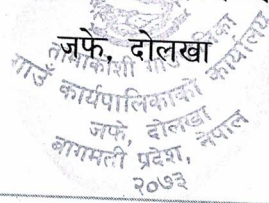 जफे, दोलखा
तामाकोशी गाउँपालिका
गाउँ कार्यपालिकाको कार्यालय
जफे, दोलखा
बागमती प्रदेश, नेपाल
२०७३